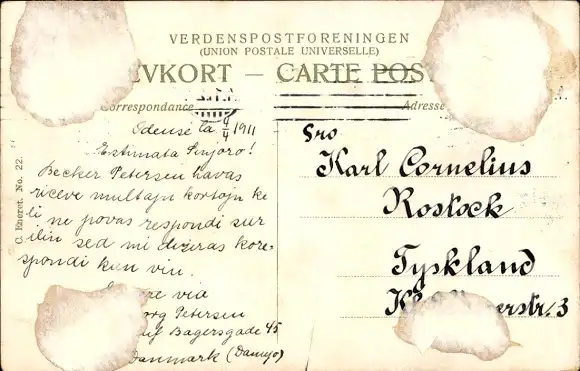 VERDENSPOSTFORENINGEN
(UNION POSTALE UNIVERSELLE)
VKORT — CARTE POS
Correspondance
Adresse
C. Eneret. No. 22.
Odense la 9/4 1911
Estimata Sinjoro!
Becker Petersen havas
riceve multajn kortojn ke
li ne povas respondi sur
ilin sed mi deziras kore-
spondi kun vin.
via
org Petersen
Bagersgade 45
Danmark (Danujo)
Sro
Karl Cornelius
Rostock
Tyskland
erstr. 3